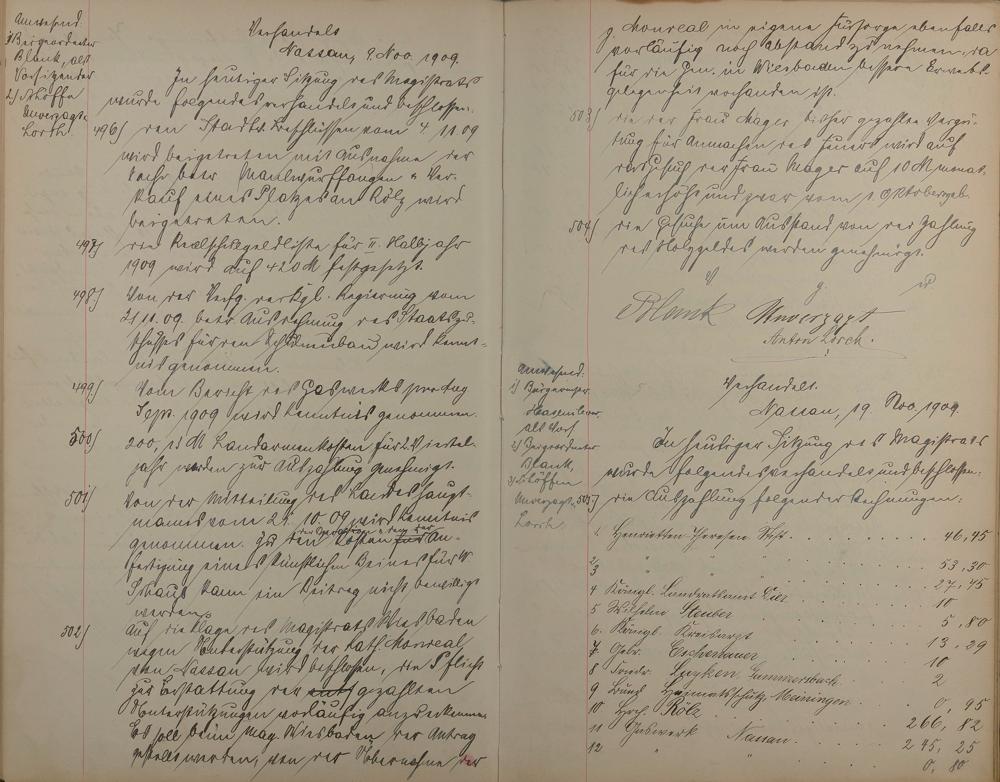 Anwesend
1) Beigeordneter
Blank, als
Vorsitzender
2) Schöffe
Unverzagt
Lorch.
Verhandelt
Nassau, 9. Nov. 1909.
In heutiger Sitzung des Magistrats
wurde folgendes verhandelt und beschlossen:
496) den Stadtv. Beschlüssen vom 4. 11. 09
wird beigetreten mit Ausnahme der
betr. Maulwurffangen u. Ver-
kauf eines Platzes an Kölz wird
beigetreten.
497) die Realschulgeldliste für II. Halbjahr
1909 wird auf 420 M festgesetzt.
498) Von der Verfg. der Kgl. Regierung vom
11. 09. betr. Ausdehnung des Staatszu-
schusses für den wird Kennt-
nis genommen.
499) Vom Bericht des Gaswerks pro Aug
Sept. 1909 wird Kenntnis genommen.
500) 200, M Landarmenkosten für Viertel-
jahr werden zur Auszahlung genehmigt.
501) Von der Mitteilung des Landeshaupt-
mannes vom 21. 10. 09 wird Kenntnis
genommen. Zu den Kosten für An-
fertigung eines künstlichen Beines für W.
kann ein Beitrag nicht bewilligt
werden.
502) Auf die Klage des Magistrats Wiesbaden
wegen Unterstützung der Kath. Monreal
von Nassau wird beschlossen, die Pflicht
zur Erstattung der gezahlten
Unterstützungen vorläufig anzuerkennen
Es soll beim Mag. Wiesbaden der Antrag
gestellt werden, von der Übernahme der
g. Monreal in eigene Fürsorge ebenfalls
vorläufig noch Abstand zu nehmen, da
für die Gen. in Wiesbaden bessere Erwerbs-
gelegenheit vorhanden ist.
503) die der Frau Mager bisher gezahlte Vergü-
tung für Anmachen des Feuers wird auf
der Frau Mager auf 10 M monat-
lich erhöht und zwar vom 1. Oktober
504) die Gesuche um Ausstand von der Zahlung
des Holzgeldes werden genehmigt.
Blank Unverzagt
Anton Lorch.
Anwesend:
1) Bürgermstr.
Hasenclever
als Vors.
2) Beigeordneter
Blank,
3) Schöffen
Unverzagt
Lorch
Verhandelt.
Nassau, 19. Nov. 1909.
In heutiger Sitzung des Magistrats
wurde folgendes verhandelt und beschlossen:
505) die Auszahlung folgender Rechnungen:
1. Henrietten Theresen Stift 46,45
2 " " 53,30
3 27,45
4 Königl. Landratsamt 10
5 Wilhelm Steuber 5,80
6. Königl. Kreisarzt 13,29
7. Gebr. 10
8 Friedr. Gummersbach 2
9 Bund Heimatschutz Meiningen 0,95
10 Kölz 266,82
11 Gaswerk Nassau 295,25
12 " 0,80